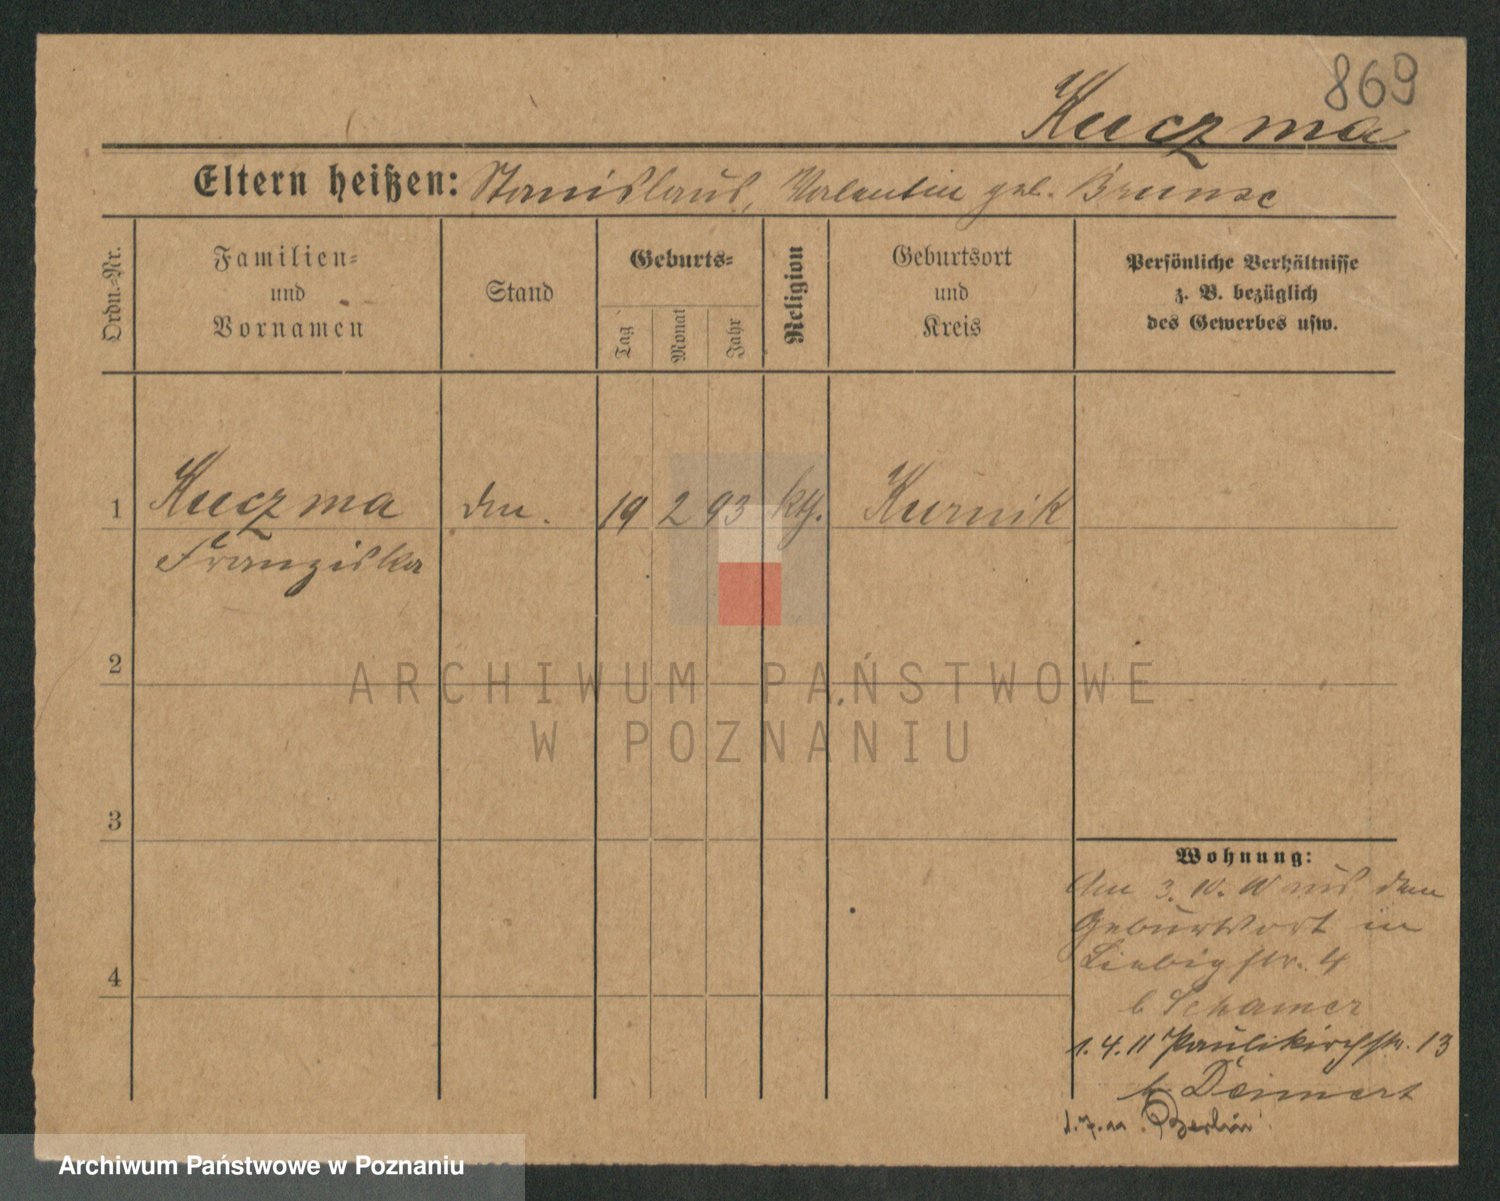 869
Kuczma
Eltern heißen: Stanislaus, Valentin geb. Brunsc
Ordn.-Nr.
Familien-
und
Vornamen
Stand
Geburts-
Tag
Monat
Jahr
Religion
Geburtsort
und
Kreis
Persönliche Verhältnisse
z. B. bezüglich
des Gewerbes usw.
1 Kuczma 19 2 93 kth. Kurnik
Franziska
2
ARCHIWUM PAŃSTWOWE
W POZNANIU
3
4
Wohnung:
3. 10. aus dem
Geburtsort in
Liebigstr. 4
b Schamer
1.4.11 Paulikirchstr. 13
b Deimert
1.7.11 Berlin
Archiwum Państwowe w Poznaniu